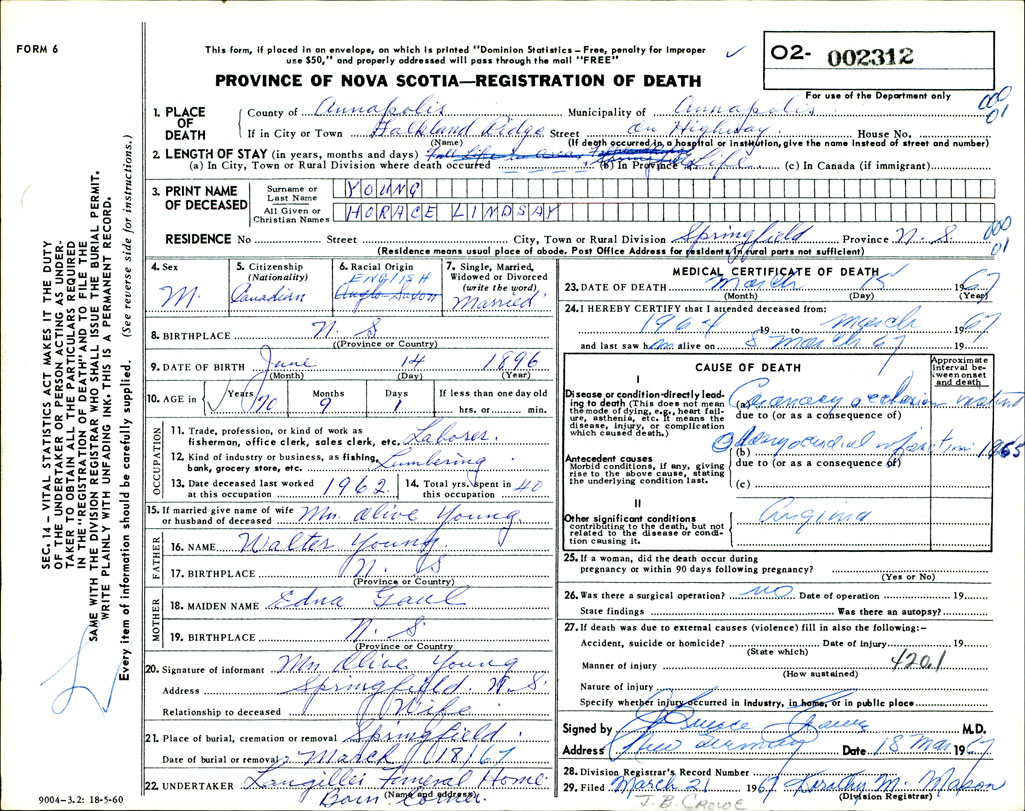 FORM 6
This form, if placed in an envelope, on which is printed "Dominion Statistics – Free, penalty for improper
use $50," and properly addressed will pass through the mail "FREE"
02- 002312
PROVINCE OF NOVA SCOTIA—REGISTRATION OF DEATH
For use of the Department only
SEC. 14 – VITAL STATISTICS ACT MAKES IT THE DUTY
OF THE UNDERTAKER OR PERSON ACTING AS UNDER-
TAKER TO OBTAIN ALL THE PARTICULARS REQUIRED
IN THE "REGISTRATION OF DEATH" AND TO FILE THE
SAME WITH THE DIVISION REGISTRAR WHO SHALL ISSUE THE BURIAL PERMIT.
WRITE PLAINLY WITH UNFADING INK. THIS IS A PERMANENT RECORD.
Every item of information should be carefully supplied. (See reverse side for instructions.)
1. PLACE OF DEATH County of Annapolis Municipality of Annapolis 000 01
If in City or Town Falkland Ridge Street on Highway House No.
(Name) (If death occurred in a hospital or institution, give the name instead of street and number)
2. LENGTH OF STAY (in years, months and days)
(a) In City, Town or Rural Division where death occurred (b) In Province Life (c) In Canada (if immigrant)
3. PRINT NAME OF DECEASED Surname or Last Name YOUNG
All Given or Christian Names HORACE LINDSAY
RESIDENCE No Street City, Town or Rural Division Springfield Province N. S. 000 01
(Residence means usual place of abode. Post Office Address for residents in rural parts not sufficient)
4. Sex M.
5. Citizenship (Nationality) Canadian
6. Racial Origin ENGLISH Anglo Saxon
7. Single, Married, Widowed or Divorced (write the word) Married
8. BIRTHPLACE N. S
((Province or Country)
9. DATE OF BIRTH June 14 1896
(Month) (Day) (Year)
10. AGE in Years 70 Months 9 Days 1 If less than one day old hrs. or min.
OCCUPATION
11. Trade, profession, or kind of work as
fisherman, office clerk, sales clerk, etc. Laborer.
12. Kind of industry or business, as fishing,
bank, grocery store, etc. Lumbering
13. Date deceased last worked at this occupation 1962 14. Total yrs. spent in this occupation 40
15. If married give name of wife
or husband of deceased Mrs. Olive Young
FATHER
16. NAME Walter Young
17. BIRTHPLACE N. S
(Province or Country)
MOTHER
18. MAIDEN NAME Edna Gaul
19. BIRTHPLACE N. S
(Province or Country
20. Signature of informant Mrs Olive Young
Address Springfield. N. S.
Relationship to deceased Wife
21. Place of burial, cremation or removal Springfield
Date of burial or removal March 18/67
22. UNDERTAKER Funeral Home
(Name and address)
Barss Corner.
9004–3.2: 18-5-60
MEDICAL CERTIFICATE OF DEATH
23. DATE OF DEATH March 15 1967
(Month) (Day) (Year)
24. I HEREBY CERTIFY that I attended deceased from:
1964 19 to March 1967
and last saw him alive on 8 March 67 19
CAUSE OF DEATH
Approximate interval between onset and death
I
Disease or condition directly leading to death (This does not mean the mode of dying, e.g., heart failure, asthenia, etc. It means the disease, injury, or complication which caused death.)
(a) Coronary occlusion instant
due to (or as a consequence of)
Antecedent causes
Morbid conditions, if any, giving rise to the above cause, stating the underlying condition last.
(b) Myocardial infarction 1965
due to (or as a consequence of)
(c)
II
Other significant conditions
contributing to the death, but not related to the disease or condition causing it.
Angina
25. If a woman, did the death occur during
pregnancy or within 90 days following pregnancy?
(Yes or No)
26. Was there a surgical operation? NO Date of operation 19
State findings Was there an autopsy?
27. If death was due to external causes (violence) fill in also the following:–
Accident, suicide or homicide? Date of injury 19
(State which)
Manner of injury 420.1
(How sustained)
Nature of injury
Specify whether injury occurred in industry, in home, or in public place
Signed by M.D.
Address New Germany Date 18 Mar 1967
28. Division Registrar's Record Number
29. Filed March 21 1967 Dorothy M. Mason
(Division Registrar)
J. B. CROWE